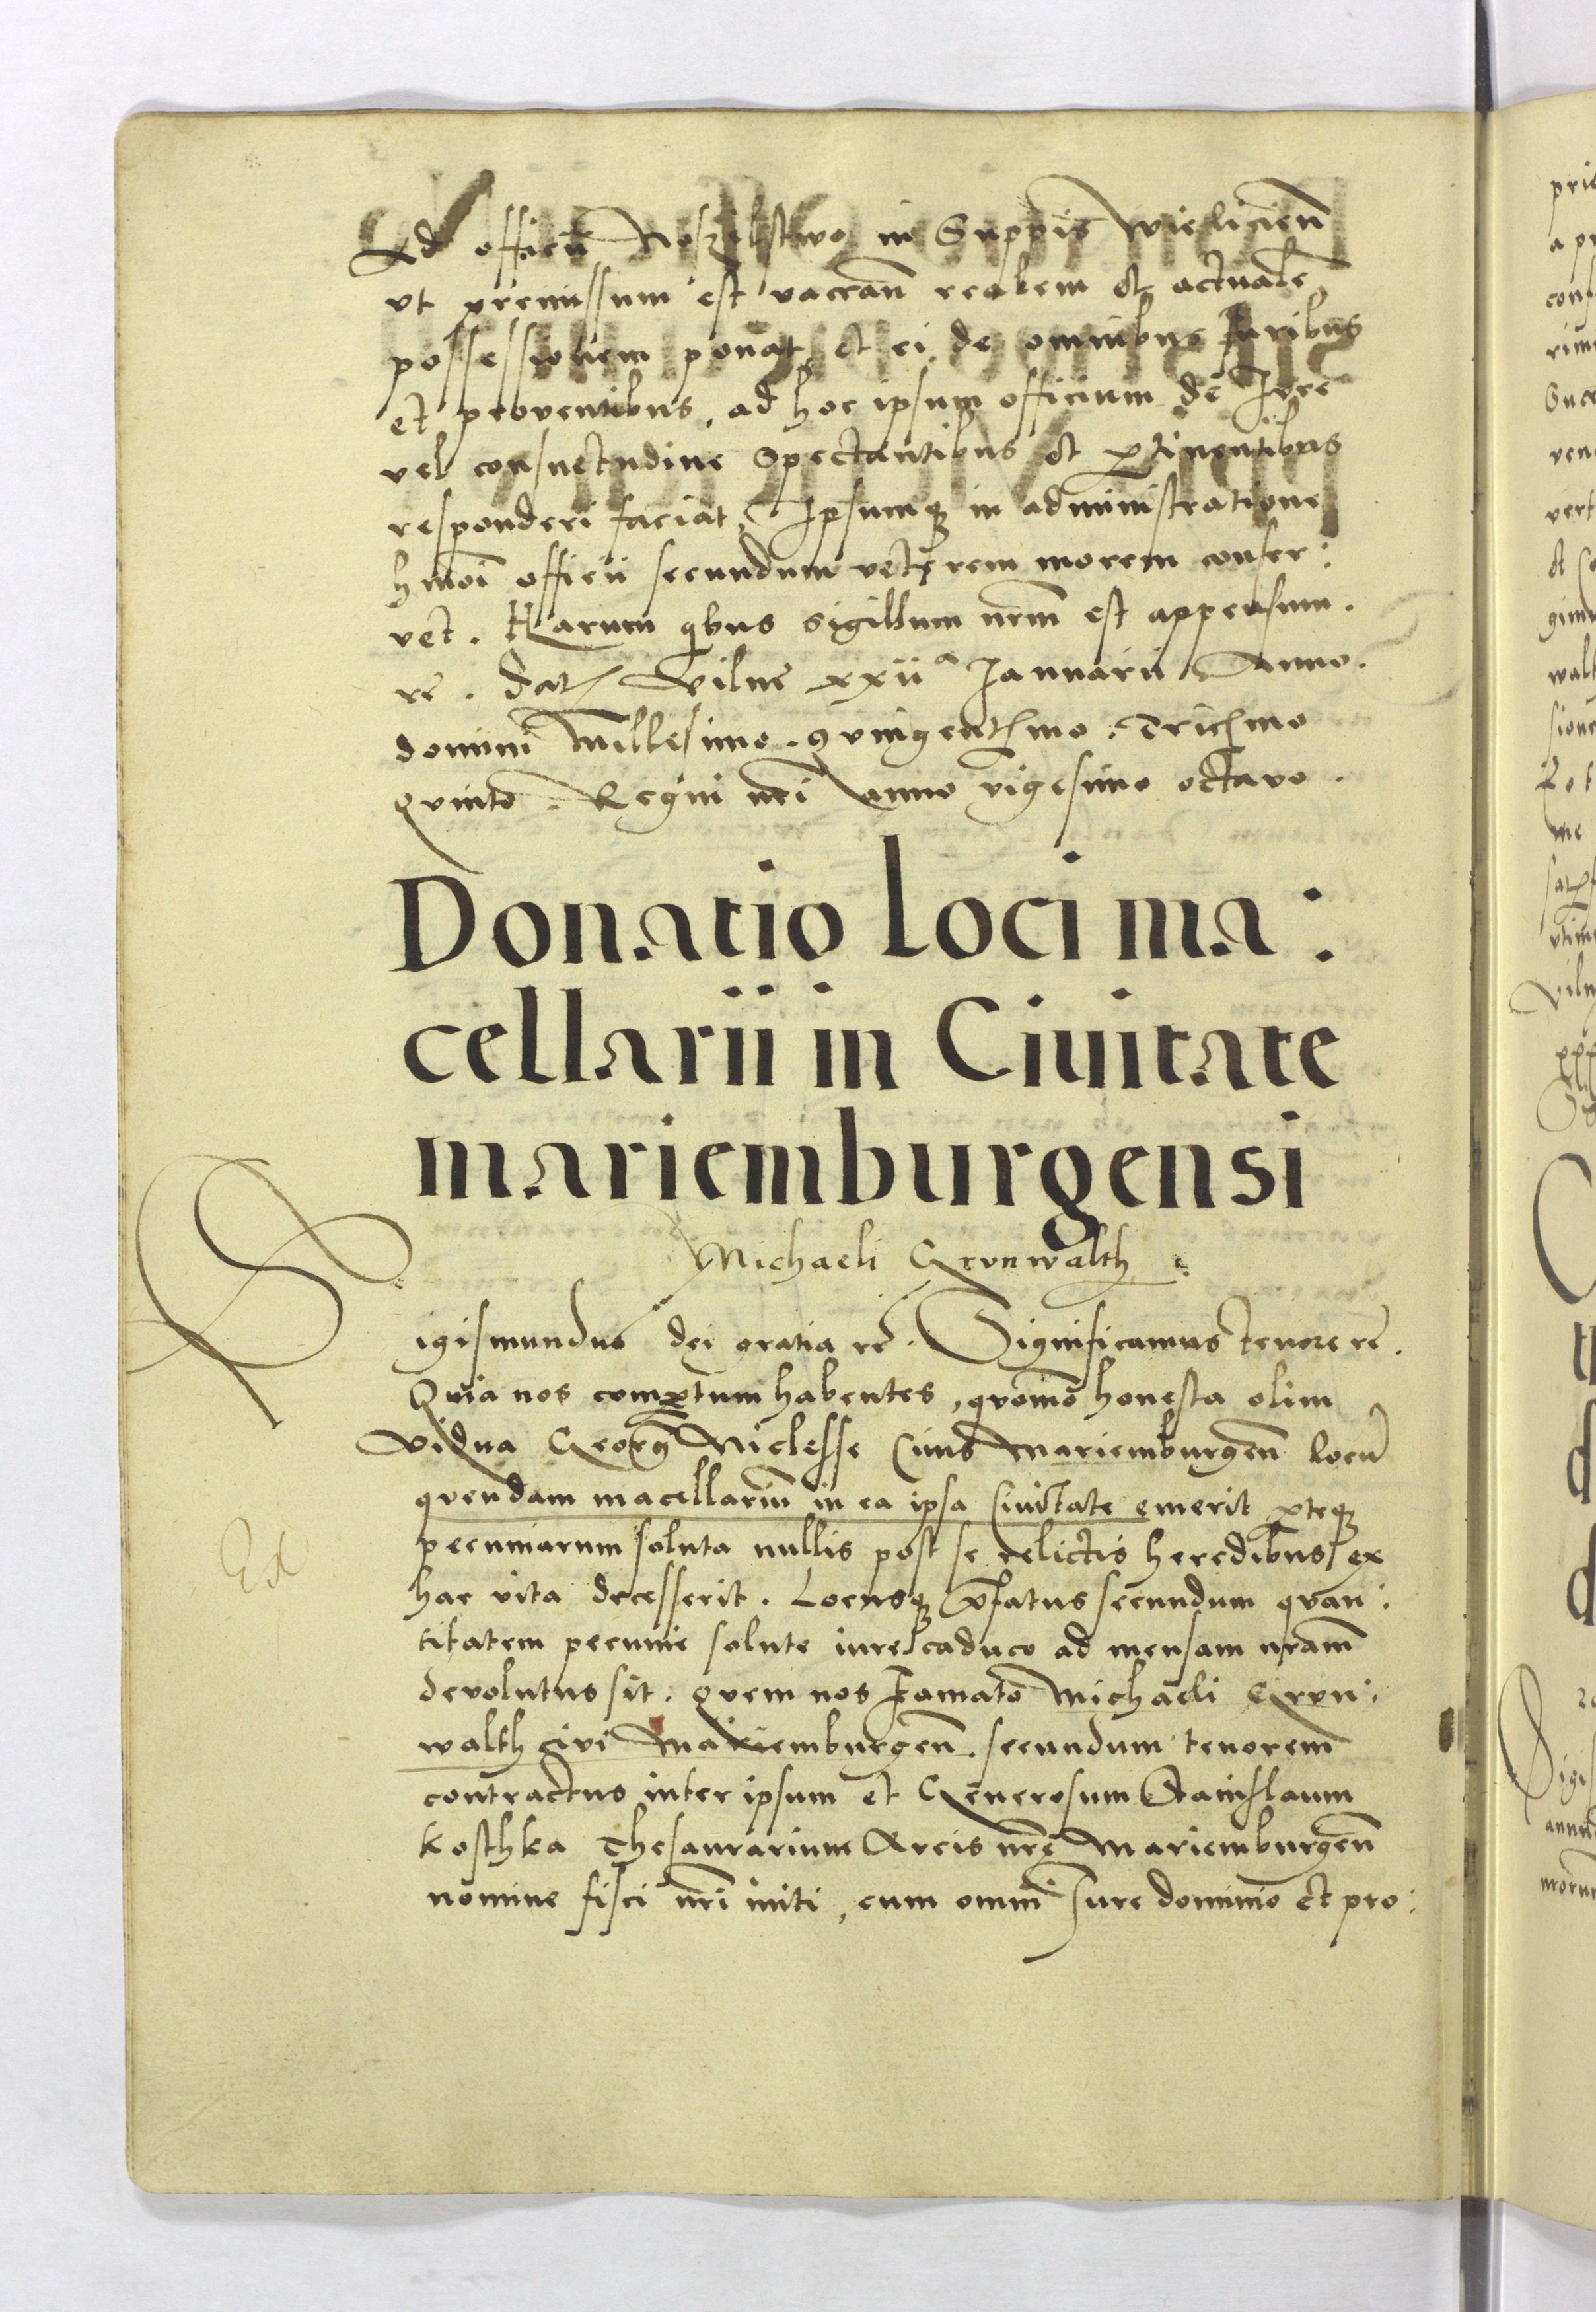 Ad officiū Noszelstwo in Suppis Wielicien̄
vt premissum est vacan̄ realem et actualē
possessionem ponat, et ei de omnibus Juribus
et proventibus, ad hoc ipsum officium de Jure
vel consuetudine Spectantibus et ꝑtinentibus
responderi faciat, Ipsumqꝫ in administratione
hmoi officii secundum veterem morem conser:
vet. Harum qbus sigillum nrm̄ est appensum.
rē. Dat Vilne xxiiª Januarii Anno.
domini Millesimo. qvingentesimo. Tricesimo
qvinto. Regni nri̅ anno vigesimo octavo.
Donatio loci ma:
cellarii in Ciuitate
mariemburgensi
Michaeli Grvnwalth.
Sigismundus dei gratia rē. Significamus tenore rē.
Qvia nos comꝑtum habentes, qvomō honesta olim
Vidua Georgii Niclesse Civis Mariemburgen̄ locū
qvendam macellariū in ea ipsa Civitate emerit ꝑteqꝫ
pecuniarum soluta nullis post se relictis heredibus ex
hac vita decesserit. Locusqꝫ p̄fatus secundum qvan:
titatem pecunie solute iure caduco ad mensam nram̄
devolutus sit. qvem nos Famato Michaeli Grvn:
walth civi Mariemburgen̄. secundum tenorem
contractus inter ipsum et Generosum Stanislaum
Kosthka Thesaurarium Arcis nrę̄ Mariemburgen̄
nomine fisci nri̅ initi, cum omni Jure dominio et pro:
Ex